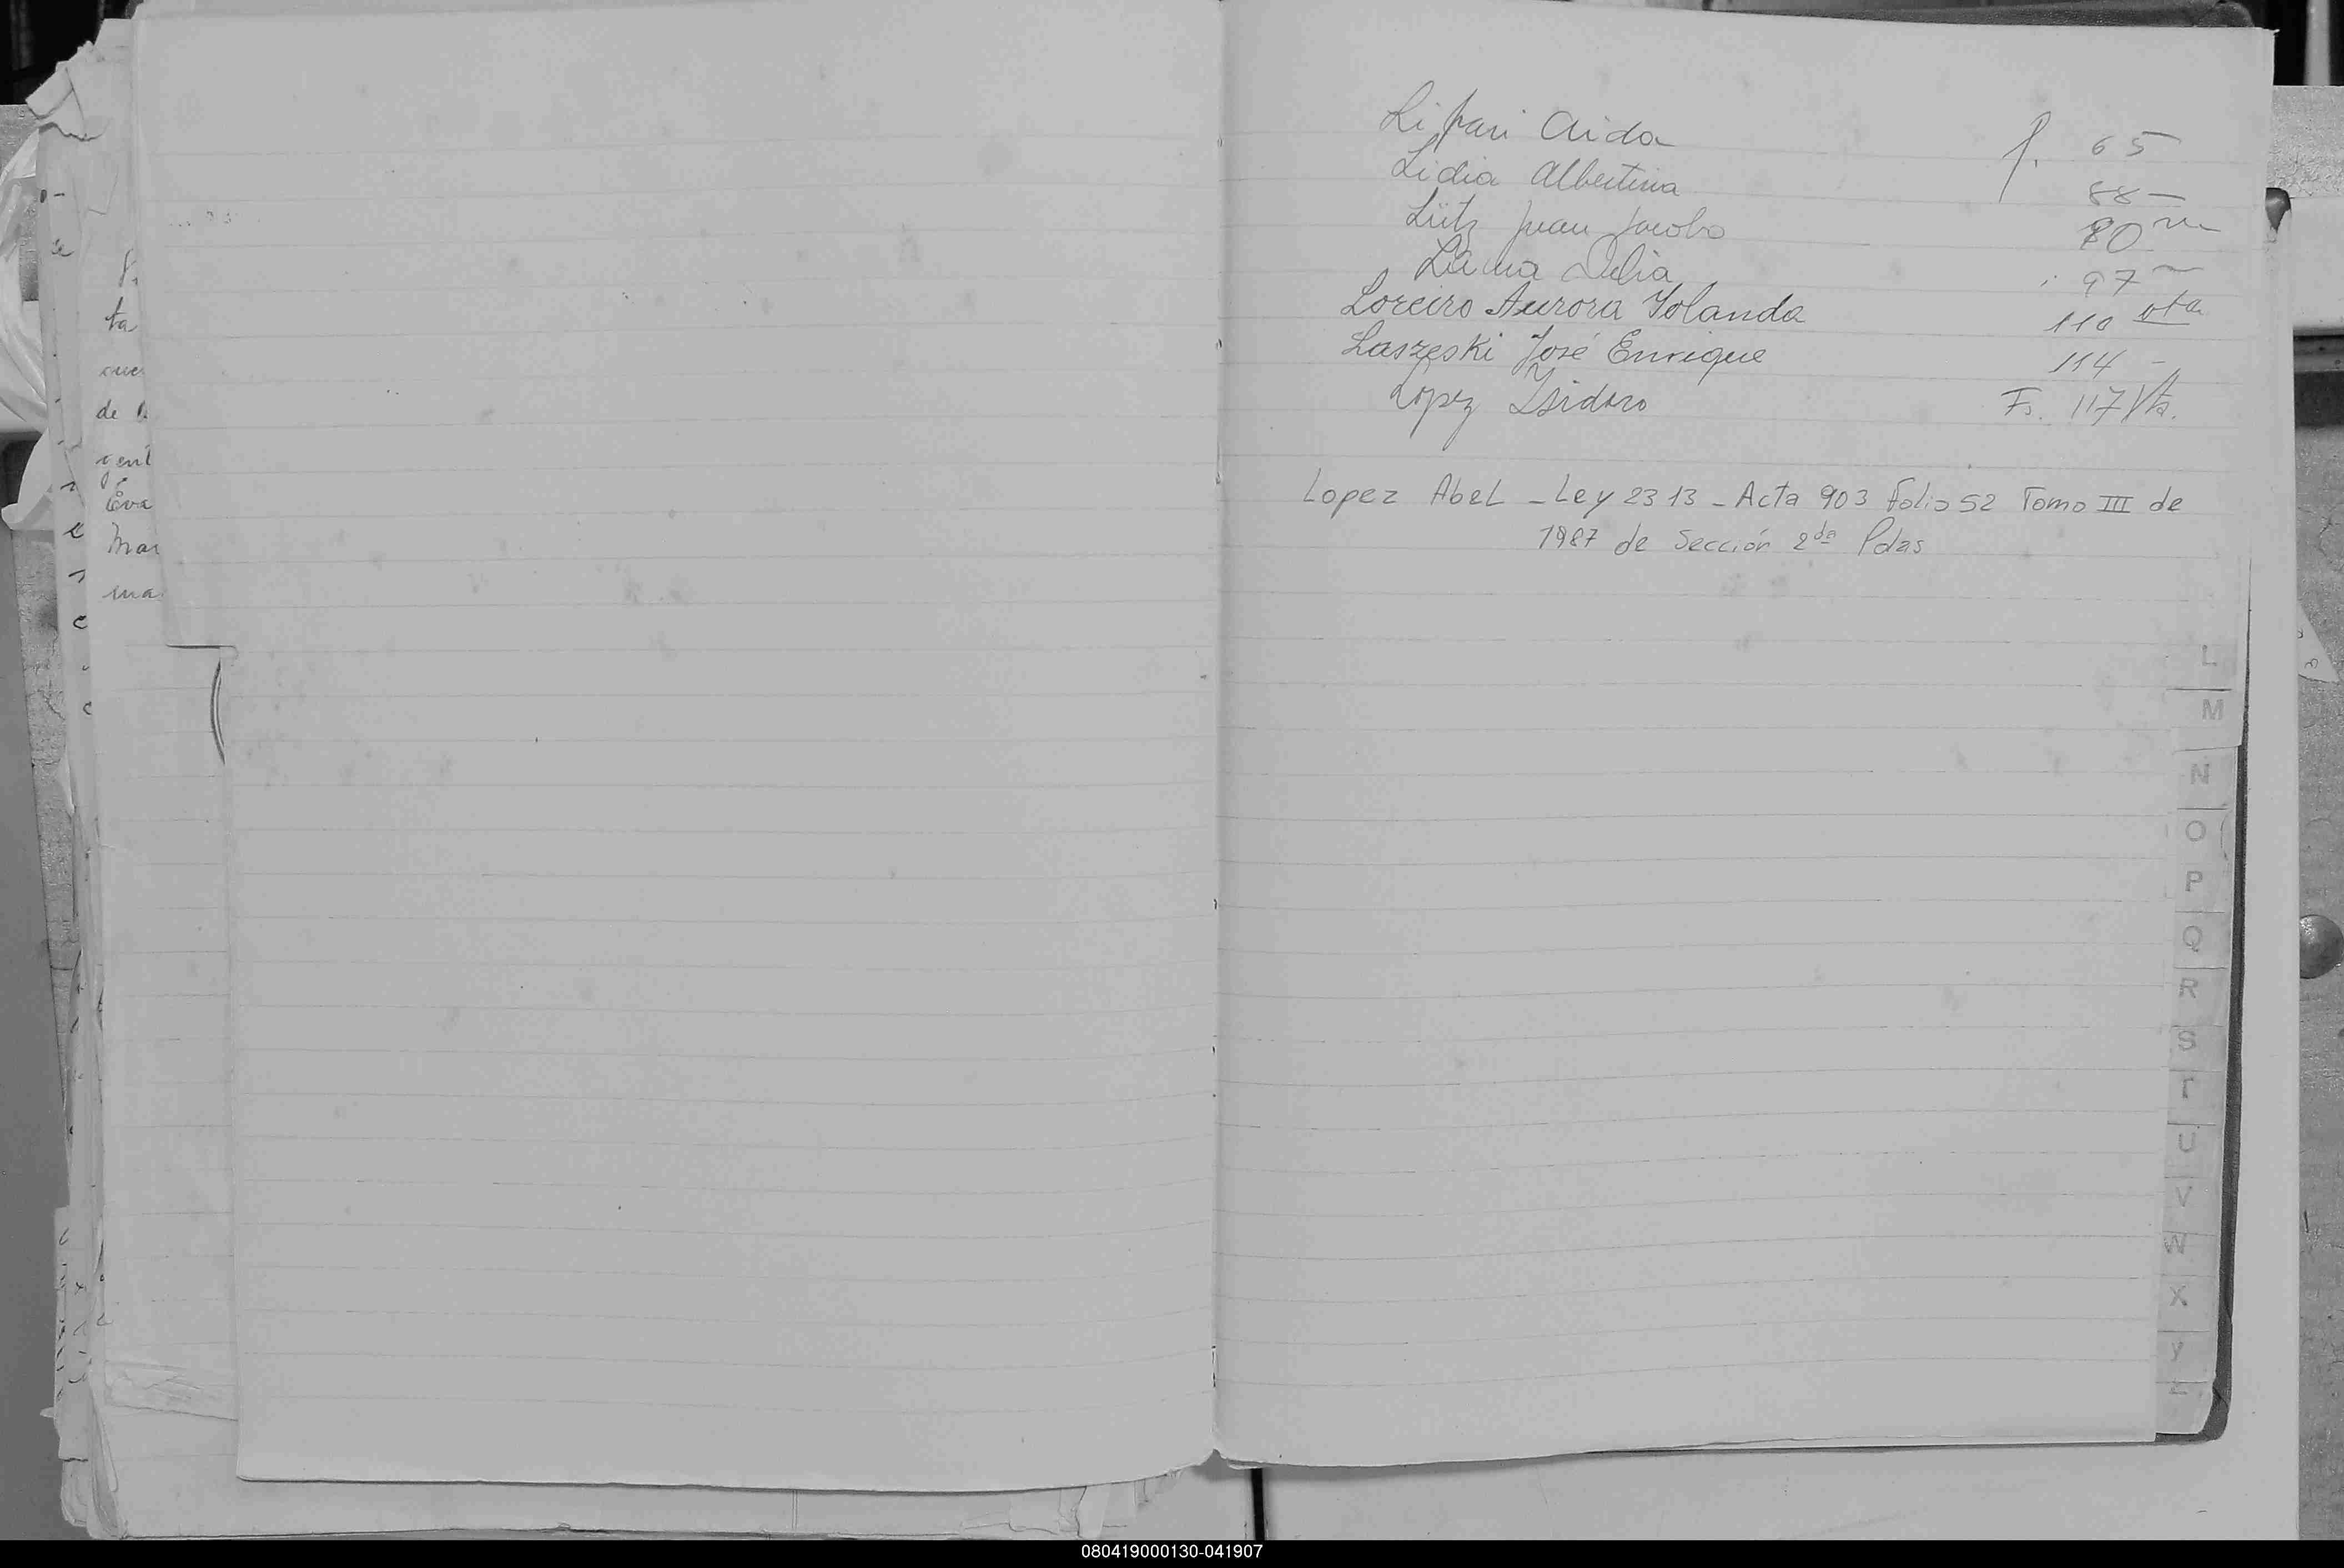 f.
ta
de
Eva
Mar
ma
Li pari Aida f. 65
Lidia Albertina 88 -
Lütz Juan Jacobo 80
Lama Delia 97
Loreiro Aurora Yolanda 110 vta
Laszeski José Enrique 114 -
Lopez Isidoro Fs. 117 Vta.
Lopez Abel - Ley 2313 - Acta 903 Folio 52 Tomo III de
1987 de Sección 2da Pdas
L
M
N
O
P
Q
R
S
T
U
V
W
X
y
Z
080419000130-041907